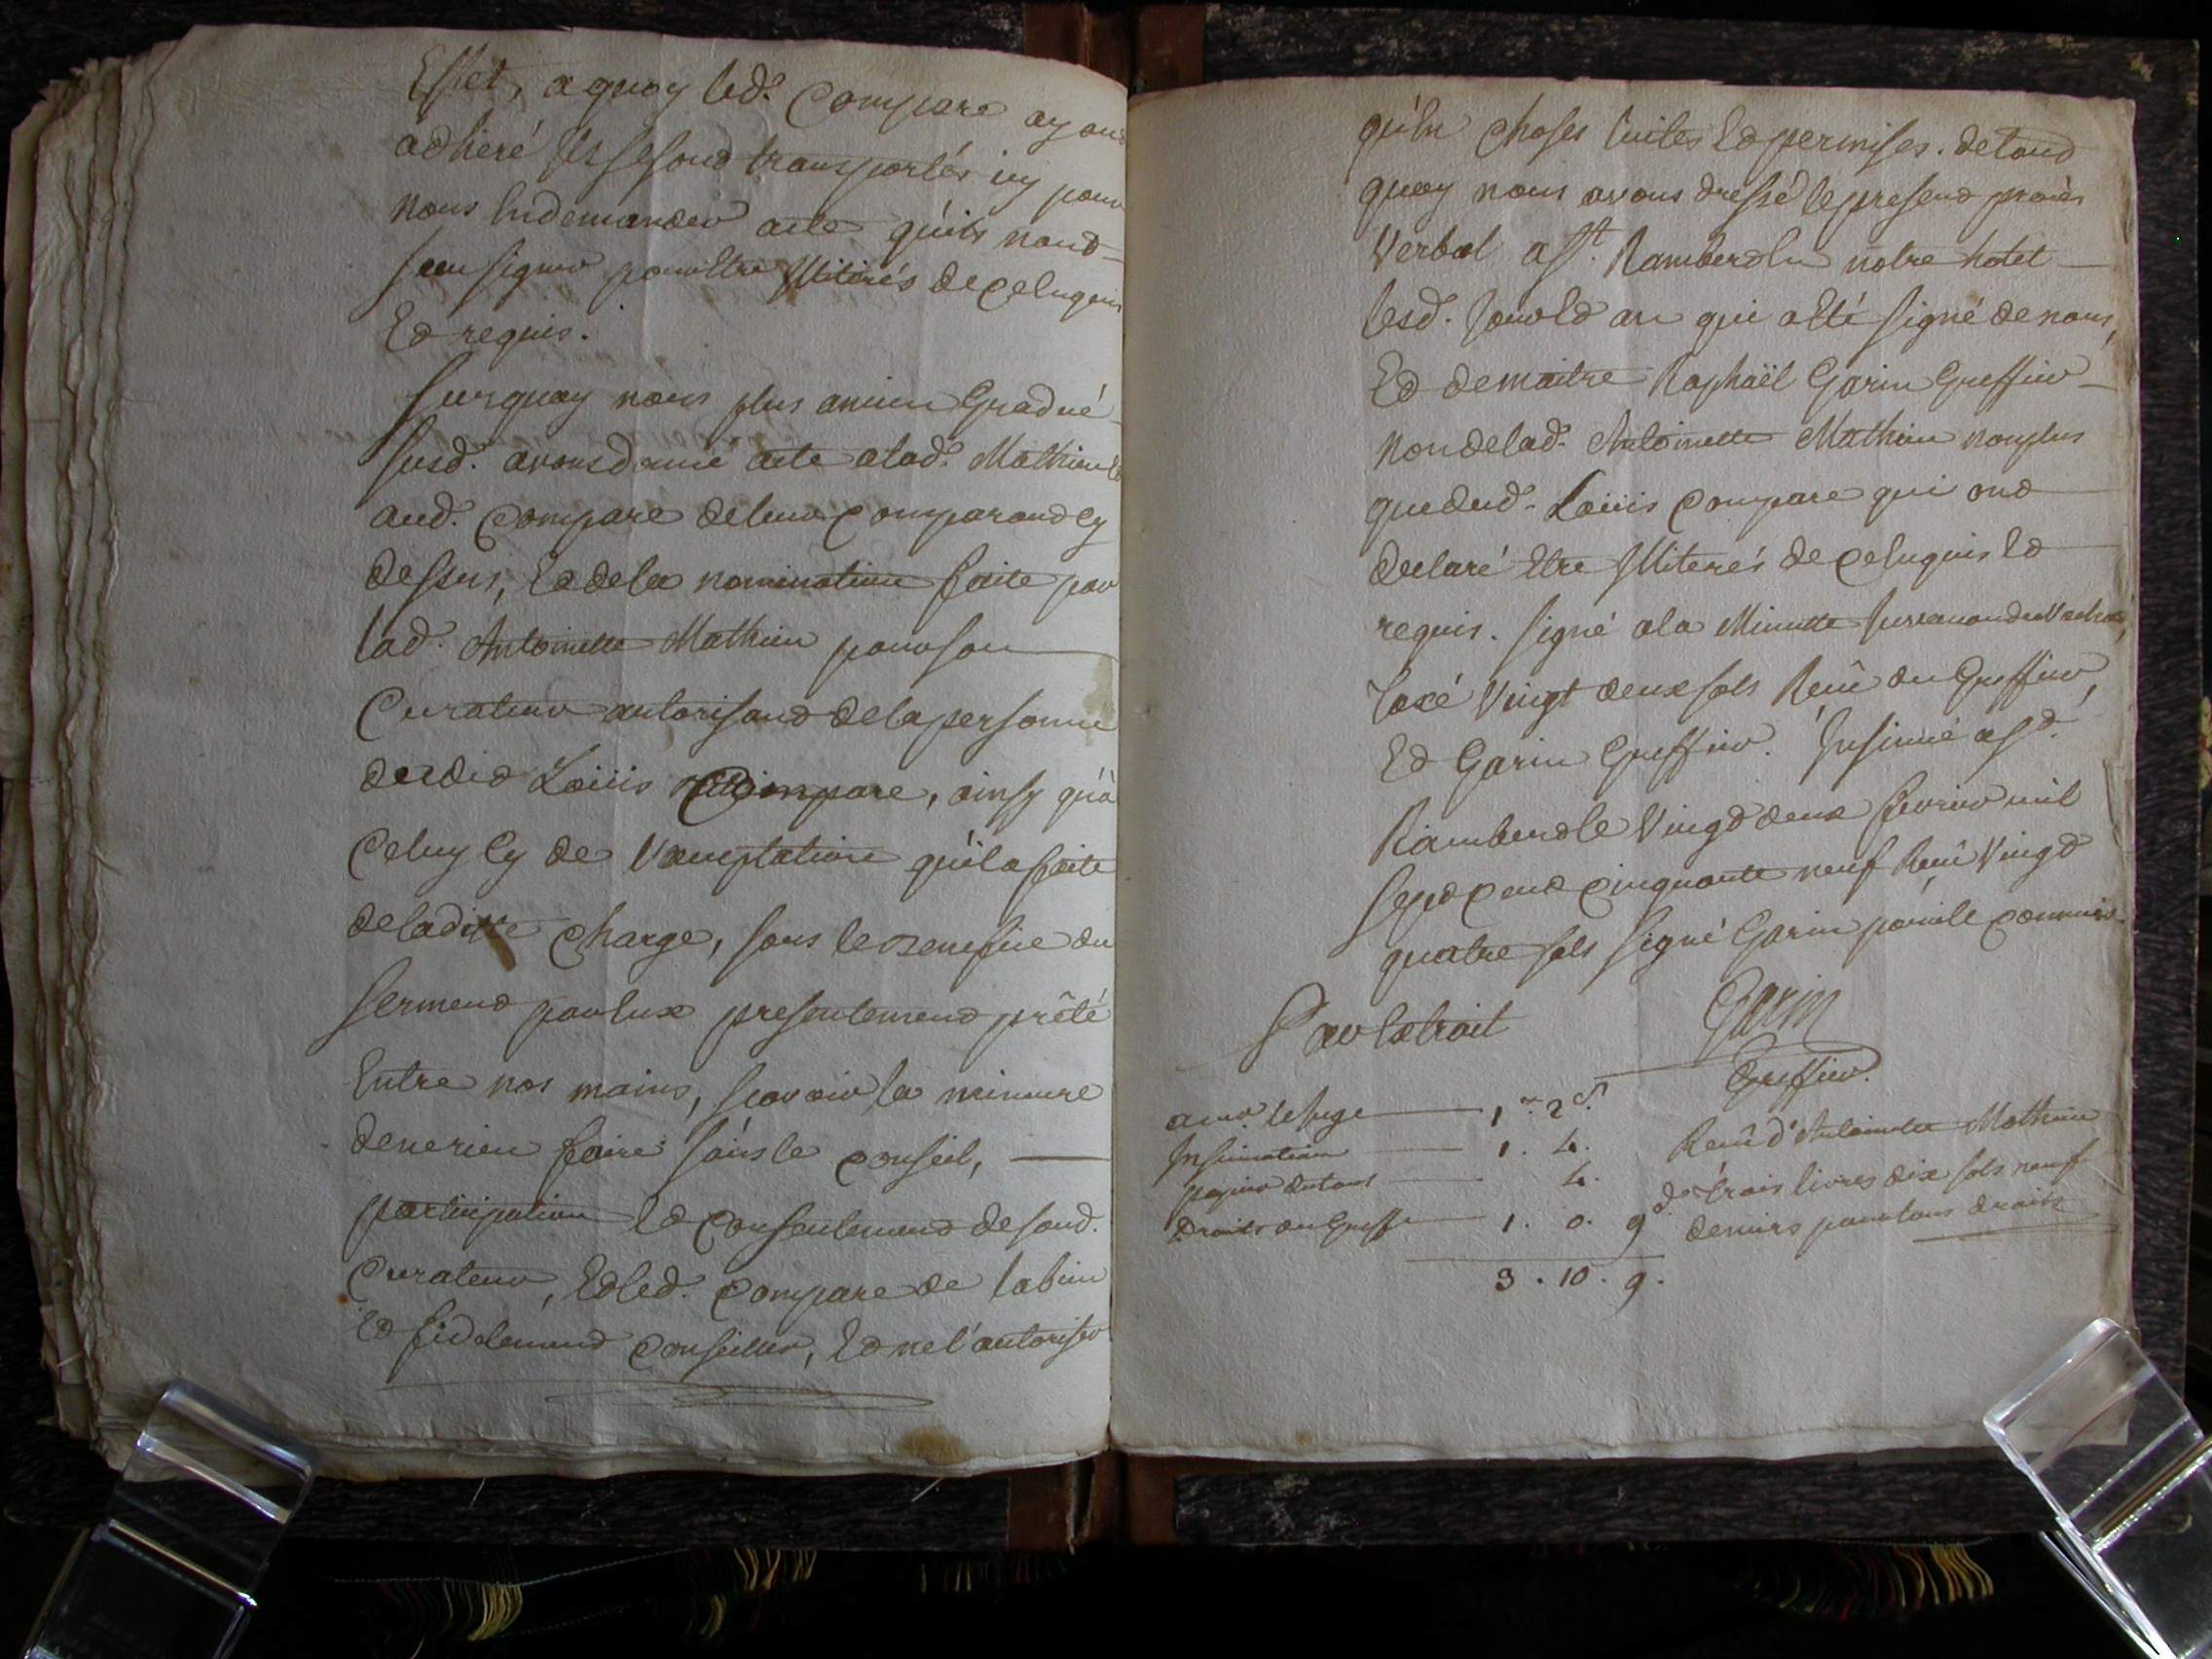 Effet, a quoy led. Compare ayant
adhéré ils se sont transportés icy pour
nous en demander acte qu'ils n'ont
sceu signer pour être illiterés de ce enquis
Et requis.
Surquoy nous plus ancien Gradué
susd. avons donné acte alad. Mathieu Et
aud. Compare de leur comparand cy
dessus, Et de la nomination faite par
lad. Antoinette Mathieu pour son
Curateur autorisant de la personne
dudit Loüis Compare, ainsy qu'à
Celuy cy de l'acceptation qu'il a faite
de laditte charge, sous le benefice du
serment par eux presentement prêté
Entre nos mains, scavoir la mineure
de ne rien faire sans le conseil,
participation Et consentement de sond.
Curateur, Et led. Compare de la bien
Et fidelement conseiller, Et ne l'autoriser
qu'en choses licites Et permises. de tout
quoy nous avons dressé le present procès
Verbal a St. Rambert En notre hotel
lesd. jour Et an qui a Eté signé de nous,
Et de maitre Raphaël Garin Greffier
non de lad. Antoinette Mathieu non plus
que dud. Loüis Compare qui ont
declaré Etre illiterés de ce enquis Et
requis. signé a la Minutte
taxé Vingt deux sols Receu du Greffier,
Et Garin Greffier. Insinué a St.
Rambert le Vingt deux fevrier mil
sept cent cinquante neuf Receu Vingt
quatre sols signé Garin pour le commis
Par Extrait
Garin
Greffier.
a mr. le juge 1. 2 s.
Insinuation 1. 4.
papier du tout 4.
Droits du Greffe 1. 0. 9 d.
3. 10. 9.
Receu d'Antoinette Mathieu
de trois livres dix sols neuf
deniers pour tous droits